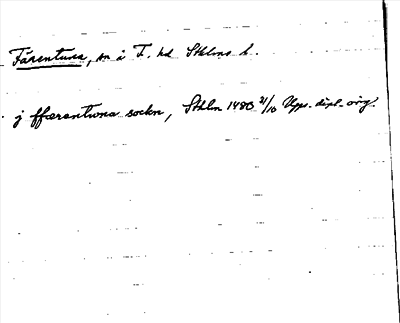 Färentuna, sn i F. hd Sthlms l.
j ffærentwna sockn, Sthlm 1480 21/10 Upps. dipl. orig.